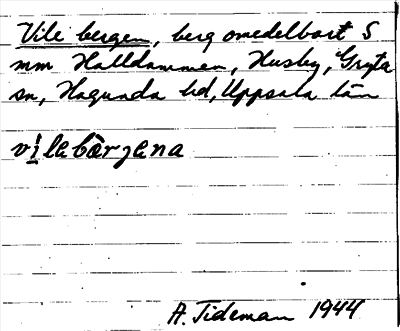 Vile bergen, berg omedelbart S
om Halldammen, Husby, Gryta
sn, Hagunda hd, Uppsala län
vilebärgena
A. Tideman 1944